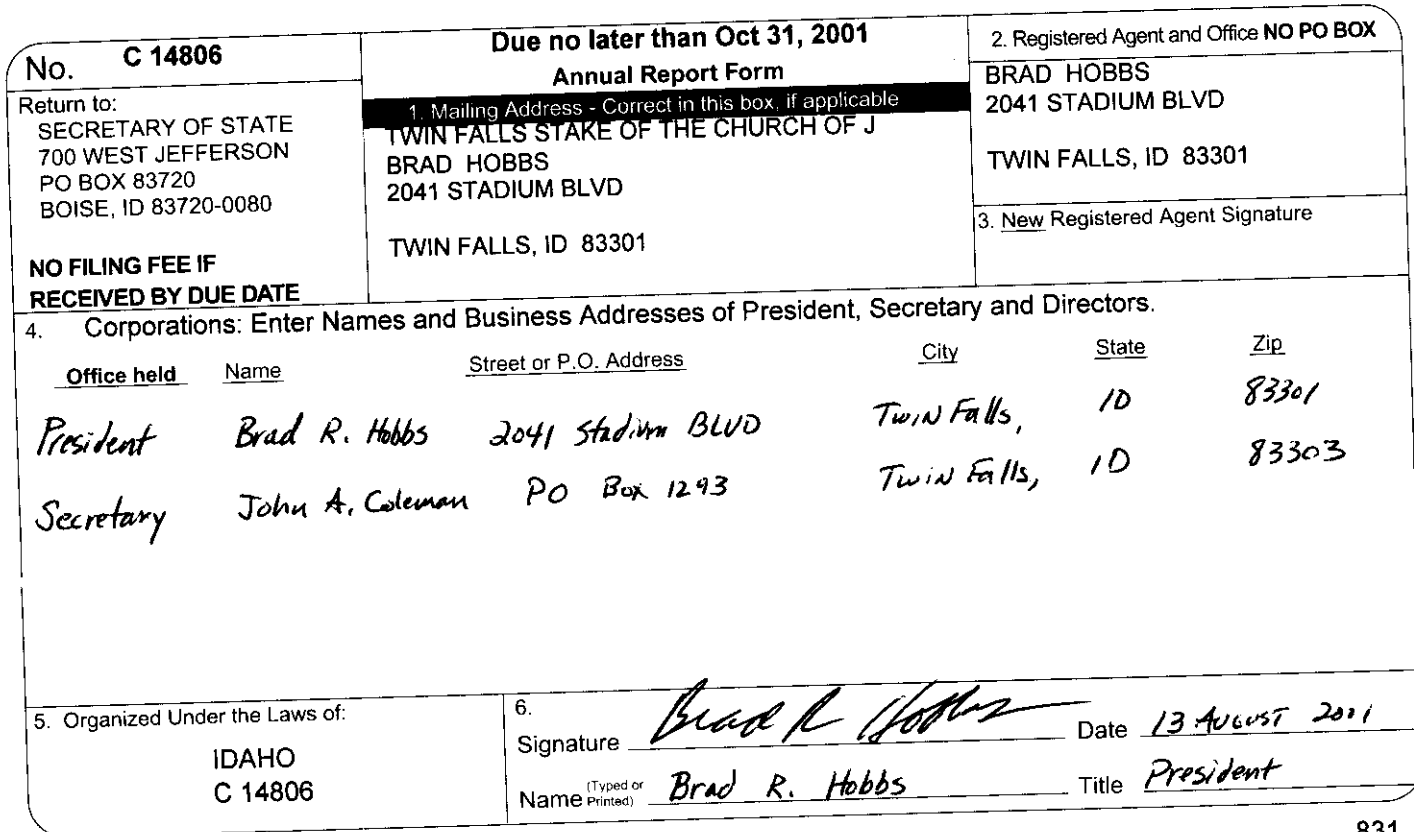 No. C 14806
Return to:
SECRETARY OF STATE
700 WEST JEFFERSON
PO BOX 83720
BOISE, ID 83720-0080
NO FILING FEE IF
RECEIVED BY DUE DATE
Due no later than Oct 31, 2001
Annual Report Form
1. Mailing Address - Correct in this box, if applicable
TWIN FALLS STAKE OF THE CHURCH OF J
BRAD HOBBS
2041 STADIUM BLVD
TWIN FALLS, ID 83301
2. Registered Agent and Office NO PO BOX
BRAD HOBBS
2041 STADIUM BLVD
TWIN FALLS, ID 83301
3. New Registered Agent Signature
4. Corporations: Enter Names and Business Addresses of President, Secretary and Directors.
Office held Name Street or P.O. Address City State Zip
President Brad R. Hobbs 2041 Stadium BLVD Twin Falls, ID 83301
Secretary John A. Coleman PO Box 1293 Twin Falls, ID 83303
5. Organized Under the Laws of:
IDAHO
C 14806
6.
Signature Brad R Hobbs Date 13 AUGUST 2001
Name (Typed or Printed) Brad R. Hobbs Title President
831